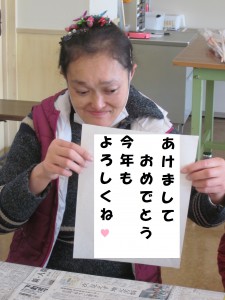 あけまして
おめでとう
今年も
よろしくね♥